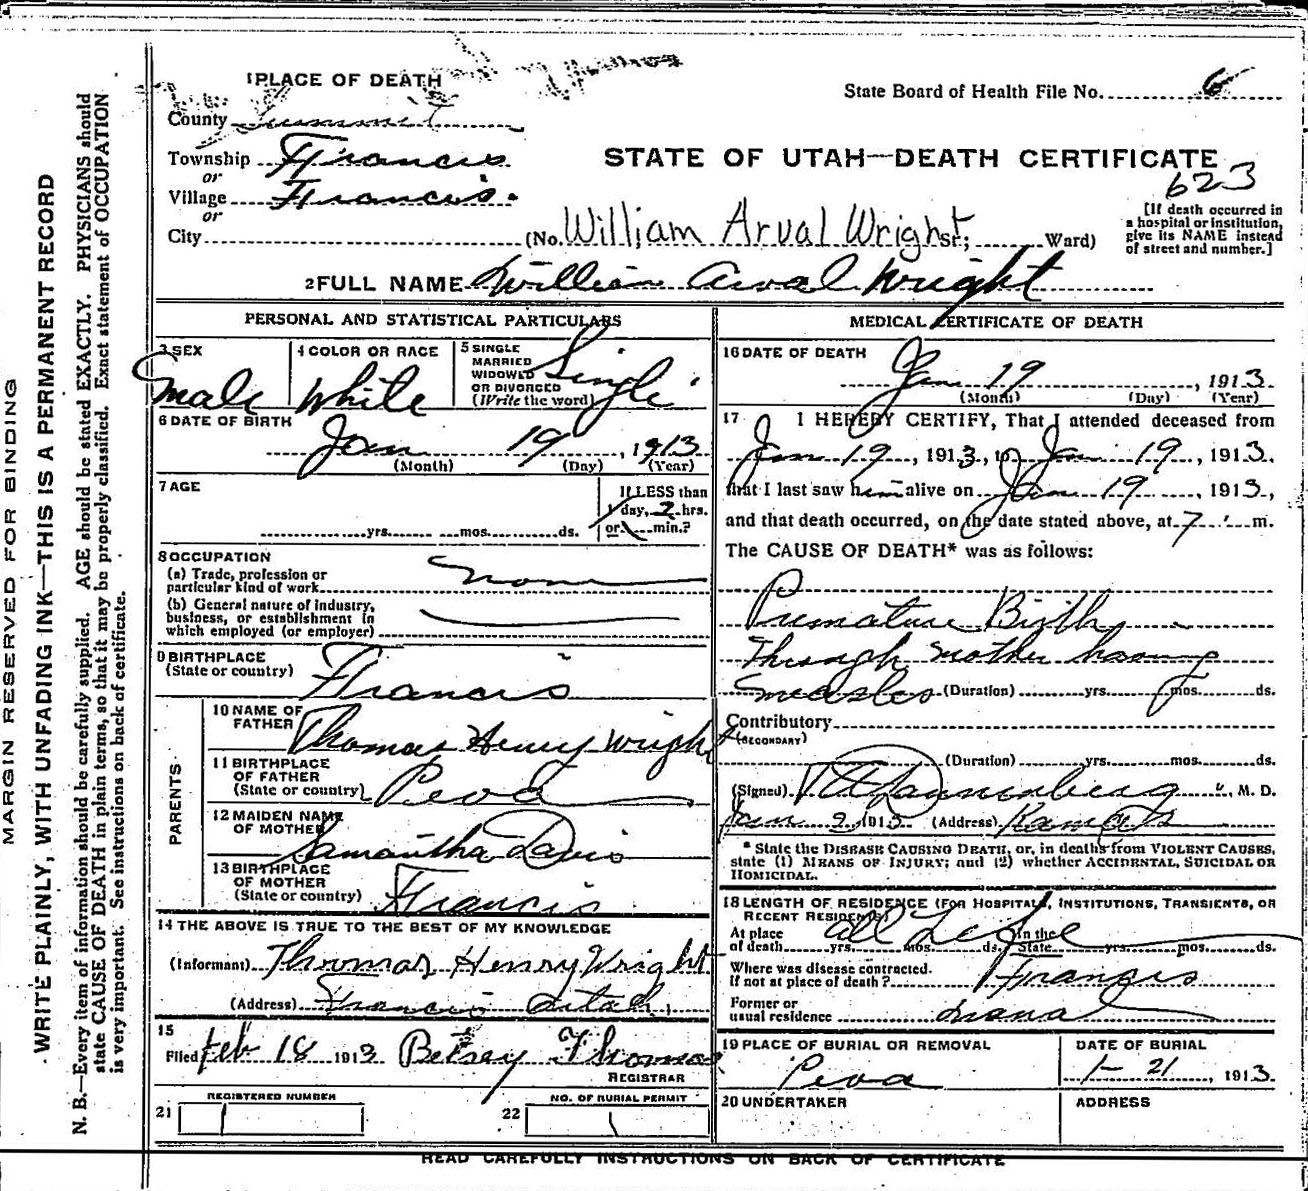 1 PLACE OF DEATH
State Board of Health File No. 6
County Summit
Township Francis
or
Village Francis.
or
City
STATE OF UTAH—DEATH CERTIFICATE
623
(No. William Arval Wright St; Ward)
[If death occurred in
a hospital or institution,
give its NAME instead
of street and number.]
2 FULL NAME William Arval Wright
PERSONAL AND STATISTICAL PARTICULARS
3 SEX
Male
4 COLOR OR RACE
White
5 SINGLE
MARRIED
WIDOWED
OR DIVORCED
(Write the word)
Single
6 DATE OF BIRTH
Jan 19, 1913
(Month) (Day) (Year)
7 AGE
yrs. mos. ds.
If LESS than
1 day, 2 hrs.
or min.?
8 OCCUPATION
(a) Trade, profession or
particular kind of work
None
(b) General nature of industry,
business, or establishment in
which employed (or employer)
9 BIRTHPLACE
(State or country)
Francis
PARENTS
10 NAME OF
FATHER
Thomas Henry Wright
11 BIRTHPLACE
OF FATHER
(State or country)
Peoa
12 MAIDEN NAME
OF MOTHER
Samantha Davis
13 BIRTHPLACE
OF MOTHER
(State or country)
Francis
14 THE ABOVE IS TRUE TO THE BEST OF MY KNOWLEDGE
(Informant) Thomas Henry Wright
(Address) Francis Utah.
15
Filed Feb 18 1913 Betsey Thomas
REGISTRAR
REGISTERED NUMBER
21
NO. OF BURIAL PERMIT
22
MEDICAL CERTIFICATE OF DEATH
16 DATE OF DEATH
Jan 19, 1913
(Month) (Day) (Year)
17 I HEREBY CERTIFY, That I attended deceased from
Jan 19, 1913, to Jan 19, 1913,
that I last saw him alive on Jan 19, 1913,
and that death occurred, on the date stated above, at 7 m.
The CAUSE OF DEATH* was as follows:
Premature Birth
Through Mother having
Measles (Duration) yrs. mos. ds.
Contributory
(SECONDARY)
(Duration) yrs. mos. ds.
(Signed) M. D.
Jan 1913 (Address) Kamas
* State the DISEASE CAUSING DEATH, or, in deaths from VIOLENT CAUSES,
state (1) MEANS OF INJURY; and (2) whether ACCIDENTAL, SUICIDAL OR
HOMICIDAL.
18 LENGTH OF RESIDENCE (FOR HOSPITALS, INSTITUTIONS, TRANSIENTS, OR
RECENT RESIDENTS)
At place
of death yrs. mos. ds. In the State yrs. mos. ds.
All Life
Where was disease contracted.
If not at place of death? Francis
Former or
usual residence
19 PLACE OF BURIAL OR REMOVAL
Peoa
DATE OF BURIAL
1-21, 1913
20 UNDERTAKER
ADDRESS
READ CAREFULLY INSTRUCTIONS ON BACK OF CERTIFICATE
MARGIN RESERVED FOR BINDING
WRITE PLAINLY, WITH UNFADING INK—THIS IS A PERMANENT RECORD
N. B.—Every item of information should be carefully supplied. AGE should be stated EXACTLY. PHYSICIANS should
state CAUSE OF DEATH in plain terms, so that it may be properly classified. Exact statement of OCCUPATION
is very important. See instructions on back of certificate.